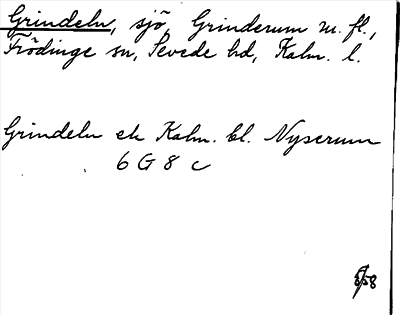 Grindeln, sjö, Grinderum m. fl.,
Frödinge sn, Sevede hd, Kalm. l.
Grindeln ek Kalm. bl. Nyserum
6 G 8 c
5/58